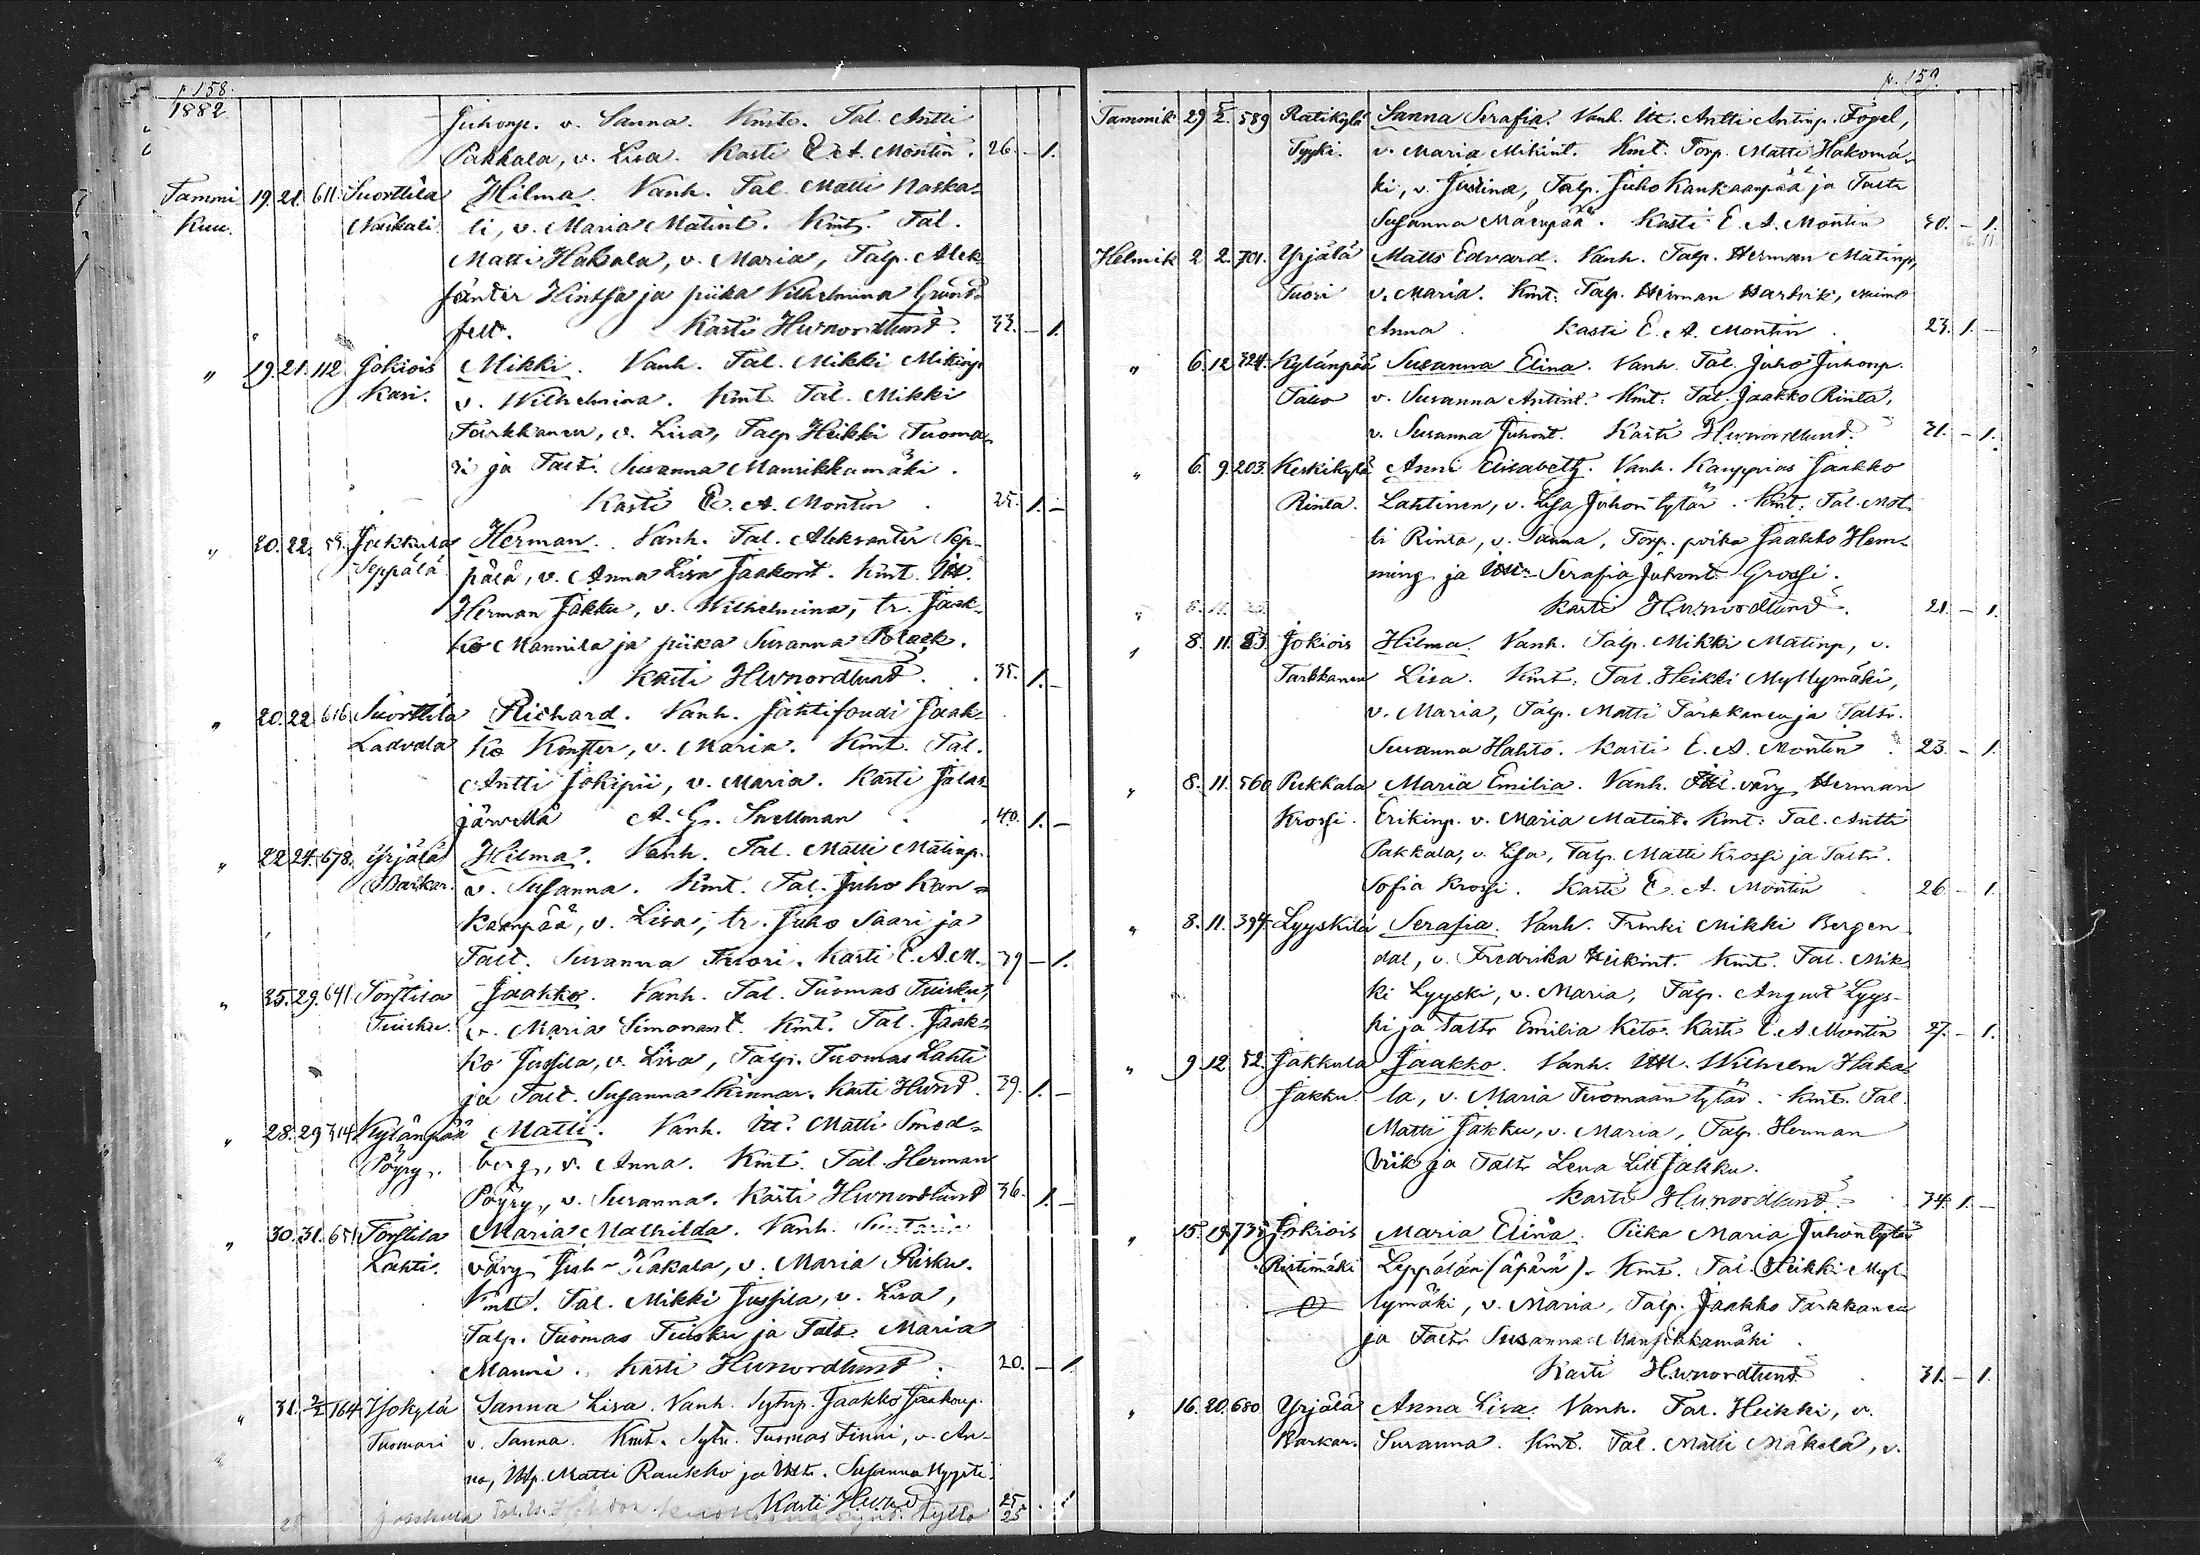 p. 158.
1882
Juhonp. v. Sanna. Kmt. Tal. Antti
Pakkala, v. Lisa. Kasti E. A. Montin. 26. – 1.
Tammi 19. 21. 611. Suorttila Hilma. Vanh. Tal. Matti Naska-
kuu. Naskali. li, v. Maria Matint. Kmt. Tal.
Matti Hakala, v. Maria, Talp. Alek-
santer Hintsa ja piika Vilhelmina Grund-
felt. Kasti Hwnordlund. 33. – 1.
" 19. 21. 112 Jokiois Mikki. Vanh. Tal. Mikki Mikinp.
Kari. v. Wilhelmina. Kmt. Tal. Mikki
Tarkkanen, v. Lisa, Talp. Heikki Tuoma-
ri ja Talt. Susanna Mansikkamäki.
Kasti E. A. Montin. 25. 1. –
" 20. 22. 59. Jakkula Herman. Vanh. Tal. Aleksanter Sep-
Seppälä pälä, v. Anna Lisa Jaakont. Kmt. Itt.
Herman Jakku, v. Wilhelmina, tr. Jaak-
ko Mannila ja piika Susanna Polack.
Kasti Hwnordlund. 35. 1. –
" 20. 22 616 Suorttila Richard. Vanh. Jahtifoudi Jaak-
Ladvala ko Konster, v. Maria. Kmt. Tal.
Antti Jokipii, v. Maria. Kasti Jalas-
järvellä A. G. Snellman. 40. 1. –
" 22 24. 678. Yrjälä Hilma. Vanh. Tal. Matti Matinp.
Barkar. v. Susanna. Kmt. Tal. Juho Kan-
kaanpää, v. Lisa, tr. Juho Saari ja
Talt. Susanna Tuori. Kasti E. A. M. 39 – 1.
" 25. 29. 641. Torstila Jaakko. Vanh. Tal. Tuomas Tuisku,
Tuisku. v. Maria Simonant. Kmt. Tal. Jaak-
ko Jussila, v. Lisa, Talp. Tuomas Lahti
ja Talt. Susanna Kinnar. Kasti Hwnd. 39. 1. –
" 28. 29 314 Kylänpää Matti. Vanh. Itt. Matti Smed-
Pöyry. berg, v. Anna. Kmt. Tal. Herman
Pöyry, v. Susanna. Kasti Hwnordlund 36. 1. –
" 30. 31. 651 Torstila Maria Mathilda. Vanh.
Lahti. väry Juh. Hakala, v. Maria Risku.
Kmt. Tal. Mikki Jussila, v. Lisa,
Talp. Tuomas Tuisku ja Talt. Maria
Manni. Kasti Hwnordlund. 20. – 1.
" 31. 2/2 164 Isokylä Sanna Lisa. Vanh. Sytnp. Jaakko Jaakonp.
Tuomari v. Sanna. Kmt. Sytn. Tuomas Finni, v. An-
na, Ittp. Matti Rausko ja Ittr. Susanna
Kasti Hwnd. 25 . 1
25
p. 159.
Tammik 29 5/2. 589 Ratikylä Sanna Serafia. Vanh. Itt. Antti Antinp. Fogel,
Tyyki. v. Maria Mikint. Kmt. Torp. Matti Hakomä-
ki, v. Justina, Talp. Juho Kankaanpää ja Taltr
Susanna Mäenpää. Kasti E. A. Montin 30. – 1.
Helmik 2 2. 701. Yrjälä Matts Edvard. Vanh. Talp. Herman Matinp,
Tuori v. Maria. Kmt. Talp. Herman Harkvik, vaimo
Anna. Kasti E. A. Montin. 23. 1. –
" 6. 12 324. Kylänpää Susanna Elina. Vanh. Tal. Juho Juhonp.
Talso v. Susanna Antint. Kmt. Tal. Jaakko Rinta,
v. Susanna Juhont. Kasti Hwnordlund. 31. – 1.
" 6. 9. 203. Keskikylä Anni Elisabeth. Vanh. Kauppias Jaakko
Rinta. Lahtinen, v. Lisa Juhon tytär. Kmt. Tal. Mat-
ti Rinta, v. Sanna, Torp. poika Jaakko Hem-
ming ja Ittr. Serafia Juhont. Grossi.
Kasti Hwnordlund. 21. – 1.
" 8. 11. 83. Jokiois Hilma. Vanh. Talp. Mikki Matinp, v.
Tarkkanen Lisa. Kmt. Tal. Heikki Myllymäki,
v. Maria, Talp. Matti Tarkkanen ja Taltr.
Susanna Hahto. Kasti E. A. Montin. 23. – 1.
" 8. 11. 560 Pukkala Maria Emilia. Vanh. Itt. väry Herman
Krossi. Erikinp. v. Maria Matint. Kmt: Tal. Antti
Pakkala, v. Lisa, Talp. Matti Krossi ja Taltr.
Sofia Krossi. Kasti E. A. Montin 26 – 1.
" 8. 11. 394. Lyyskilä Serafia. Vanh. Trenki Mikki Bergen-
dal, v. Fredrika Heikint. Kmt. Tal. Mik-
ki Lyyski, v. Maria, Talp. August Lyys-
ki ja Taltr Emilia Keto. Kasti E. A. Montin 27. – 1.
" 9 12 52. Jakkula Jaakko. Vanh. Itt. Wilhelm Haka-
Jakku la, v. Maria Tuomaan tytär. Kmt. Tal.
Matti Jakku, v. Maria, Talp. Herman
Viik ja Taltr Lena Lis Jakku.
Kasti Hwnordlund. 34. 1. –
" 15. 19. 735 Jokiois Maria Elina. Piika Maria Juhontytär
Ristimäki Leppälän (äpärä). Kmt. Tal. Heikki Myl-
lymäki, v. Maria, Talp. Jaakko Tarkkanen
ja Taltr Susanna Mansikkamäki.
Kasti Hwnordlund. 31. – 1.
" 16. 20. 680 Yrjälä Anna Lisa. Vanh. Tal. Heikki, v.
Barkar. Susanna. Kmt. Tal. Matti Mäkelä, v.